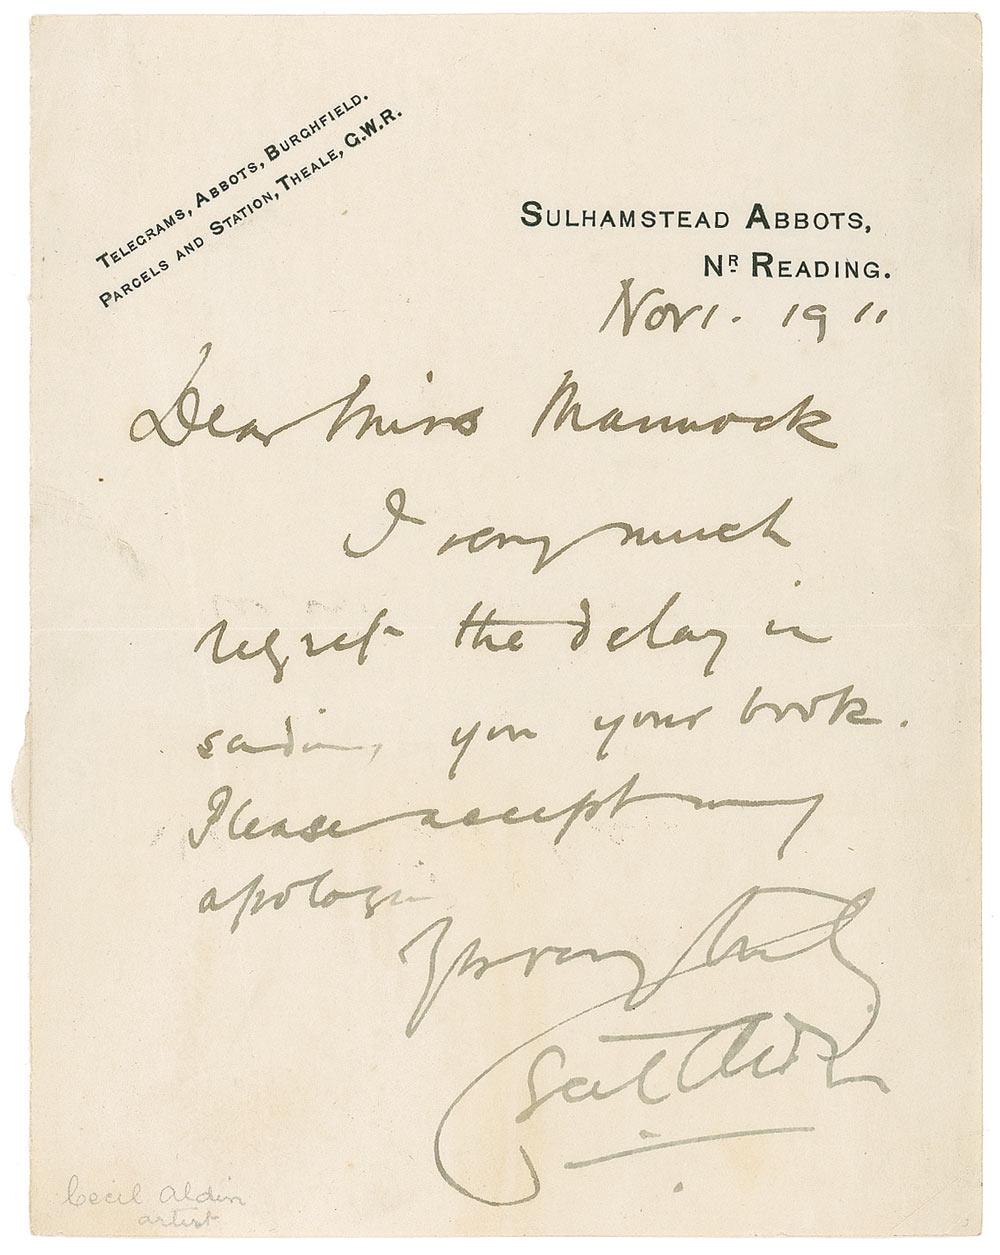 Telegrams, Abbots, Burghfield.
Parcels and Station, Theale, G.W.R.
Sulhamstead Abbots,
Nr Reading.
Nov 1. 1911
Dear Miss Mannock
I very much
regret the delay in
sending you your book.
Please accept my
apologies
Yrs very truly
Cecil Aldin
Cecil Aldin
artist